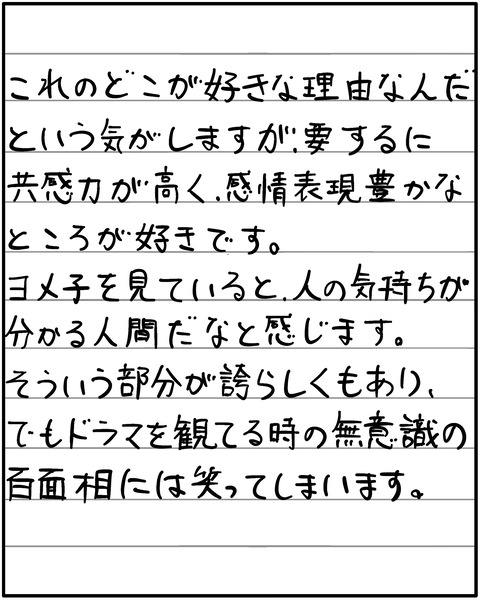 これのどこが好きな理由なんだ
という気がしますが、要するに
共感力が高く、感情表現豊かな
ところが好きです。
ヨメ子を見ていると、人の気持ちが
分かる人間だなと感じます。
そういう部分が誇らしくもあり、
でもドラマを観てる時の無意識の
百面相には笑ってしまいます。